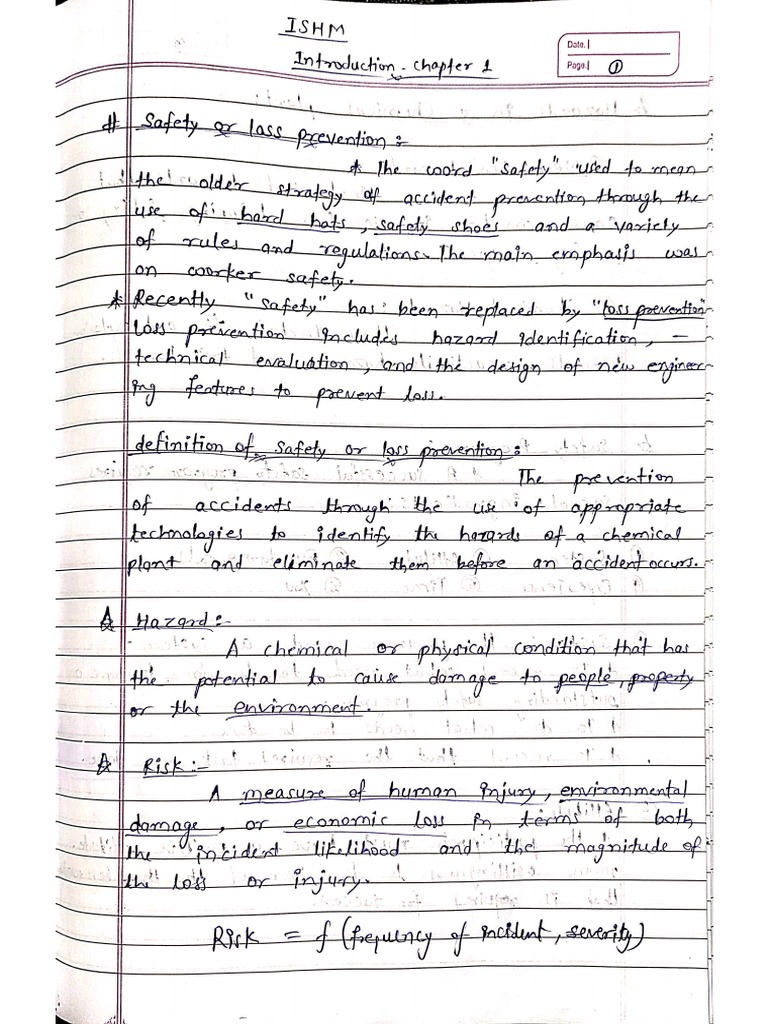 ISHM
Introduction - chapter 1
Date.
Page. 1
# Safety or loss prevention :-
* The word "safety" used to mean
the older strategy of accident prevention through the
use of hard hats, safety shoes and a variety
of rules and regulations. The main emphasis was
on worker safety.
* Recently "safety" has been replaced by "loss prevention"
loss prevention includes hazard identification, -
technical evaluation, and the design of new engineer
ing features to prevent loss.
definition of safety or loss prevention :
The prevention
of accidents through the use of appropriate
technologies to identify the hazards of a chemical
plant and eliminate them before an accident occurs.
☆ Hazard :-
A chemical or physical condition that has
the potential to cause damage to people, property
or the environment.
☆ Risk :-
A measure of human injury, environmental
damage, or economic loss in terms of both
the incident likelihood and the magnitude of
the loss or injury.
Risk = f (frequency of incident, severity)